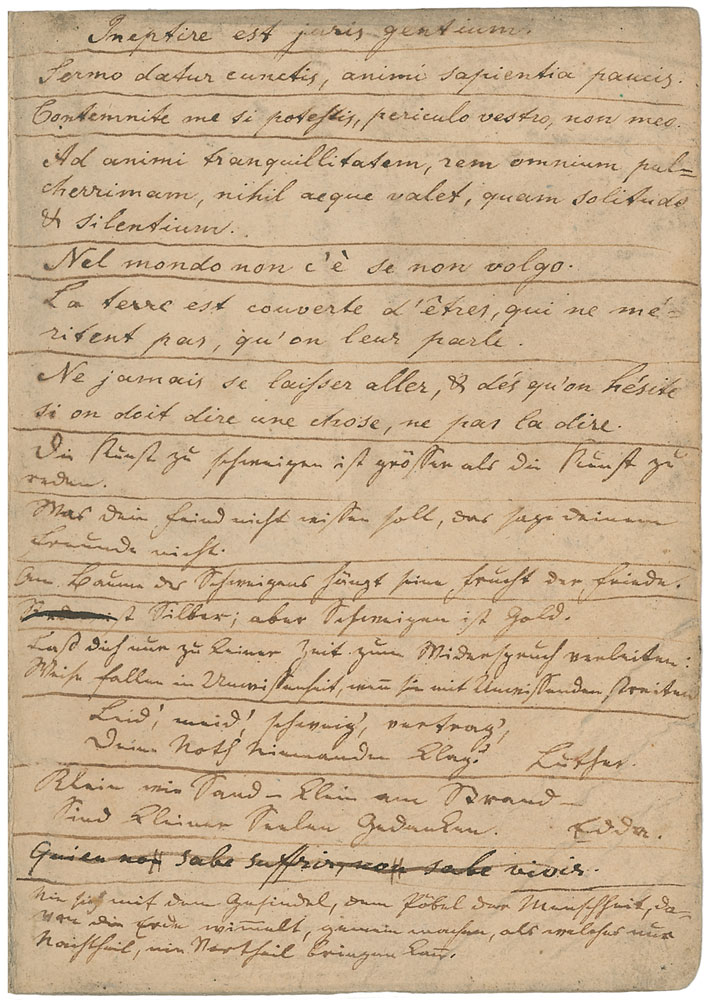 Ineptire est juris gentium.
Sermo datur cunctis, animi sapientia paucis.
Contemnite me si potestis, periculo vestro, non meo.
Ad animi tranquillitatem, rem omnium pul=
cherrimam, nihil aeque valet, quam solitudo
& silentium.
Nel mondo non c'è se non volgo.
La terre est couverte d'êtres, qui ne mé=
ritent pas, qu'on leur parle.
Ne jamais se laisser aller, & dés qu'on hésite
si on doit dire une chose, ne pas la dire.
Die Kunst zu schweigen ist grösser als die Kunst zu
reden.
Was dein Feind nicht wissen soll, das sage deinem
Freunde nicht.
Am Baume des Schweigens hängt seine Frucht der Friede.
t Silber; aber Schweigen ist Gold.
Laß dich nur zu keiner Zeit zum Widerspruch verleiten:
Weise fallen in Unwissenheit, wenn sie mit Unwissenden streiten
Leid', meid', schweig', vertrag',
Deine Noth Niemanden klag'. Luther.
Klein wie Sand – klein am Strand –
Sind kleiner Seelen Gedanken. Edda.
Quien non sabe suffrir, non sabe vivir.
Nie sich mit dem Gesindel, dem Pöbel der Menschheit, da=
von die Erde wimmelt, gemein machen, als welches nur
Nachtheil, nie Vortheil bringen kann.